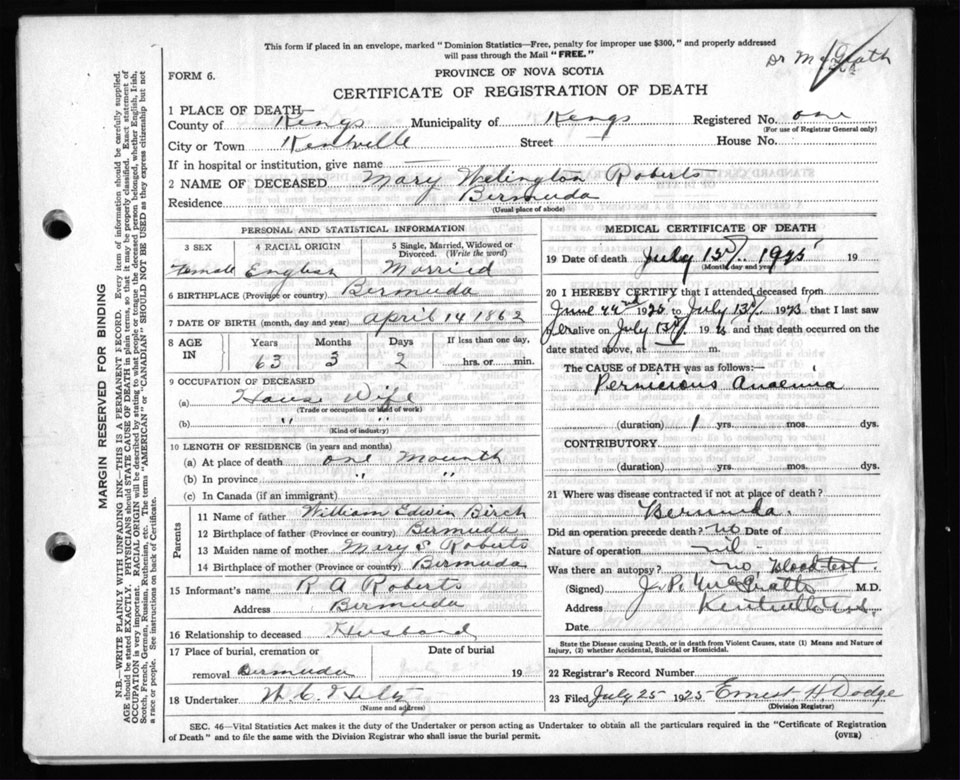 This form if placed in an envelope, marked "Dominion Statistics—Free, penalty for improper use $300," and properly addressed
will pass through the Mail "FREE."
Dr McGrath
FORM 6.
PROVINCE OF NOVA SCOTIA
CERTIFICATE OF REGISTRATION OF DEATH
1 PLACE OF DEATH—
County of Kings Municipality of Kings Registered No. one
(For use of Registrar General only)
City or Town Kentville Street House No.
If in hospital or institution, give name —
2 NAME OF DECEASED Mary Roberts
Residence Bermuda
(Usual place of abode)
PERSONAL AND STATISTICAL INFORMATION
3 SEX 4 RACIAL ORIGIN 5 Single, Married, Widowed or Divorced. (Write the word)
Female English Married
6 BIRTHPLACE (Province or country) Bermuda
7 DATE OF BIRTH (month, day and year) April 14 1862
8 AGE IN Years Months Days If less than one day,
63 3 2 hrs. or min.
9 OCCUPATION OF DECEASED
(a) House Wife
(Trade or occupation or kind of work)
(b) " "
(Kind of industry)
10 LENGTH OF RESIDENCE (in years and months)
(a) At place of death one Mounth
(b) In province " "
(c) In Canada (if an immigrant)
Parents
11 Name of father William Edwin Birch
12 Birthplace of father (Province or country) Bermuda
13 Maiden name of mother Mary S Roberts
14 Birthplace of mother (Province or country) Bermuda
15 Informant's name R A Roberts
Address Bermuda
16 Relationship to deceased Husband
17 Place of burial, cremation or Date of burial
removal Bermuda 19
18 Undertaker W. C.
(Name and address)
MEDICAL CERTIFICATE OF DEATH
19 Date of death July 1925 19
(Month, day and year)
20 I HEREBY CERTIFY that I attended deceased from
June 1925 to July 192 and that I last saw
alive on July 192 and that death occurred on
date stated above, at m.
The CAUSE of DEATH was as follows:—
Pernicious Anaemia
(duration) 1 yrs. mos. dys.
CONTRIBUTORY.
(duration) yrs. mos. dys.
21 Where was disease contracted if not at place of death?
Bermuda.
Did an operation precede death? no Date of
Nature of operation nil
Was there an autopsy? no Blood test.
(Signed) J. P. McGrath M.D.
Address Kentville
Date
State the Disease causing Death, or in death from Violent Causes, state (1) Means and Nature of
Injury, (2) whether Accidental, Suicidal or Homicidal.
22 Registrar's Record Number
23 Filed July 25 1925 Ernest H Dodge
(Division Registrar)
SEC. 46—Vital Statistics Act makes it the duty of the Undertaker or person acting as Undertaker to obtain all the particulars required in the "Certificate of Registration
of Death" and to file the same with the Division Registrar who shall issue the burial permit.
(OVER)
MARGIN RESERVED FOR BINDING
N.B.—WRITE PLAINLY WITH UNFADING INK—THIS IS A PERMANENT RECORD. Every item of information should be carefully supplied.
AGE should be stated EXACTLY. PHYSICIANS should STATE CAUSE OF DEATH in plain terms, so that it may be properly classified. Exact statement of
OCCUPATION is very important. RACIAL ORIGIN will be described by stating to what people or tongue the deceased person belonged, whether English, Irish,
Scotch, French, German, Russian, Ruthenian, etc. The terms "AMERICAN" or "CANADIAN" SHOULD NOT BE USED as they express citizenship but not
a race or people. See instructions on back of Certificate.